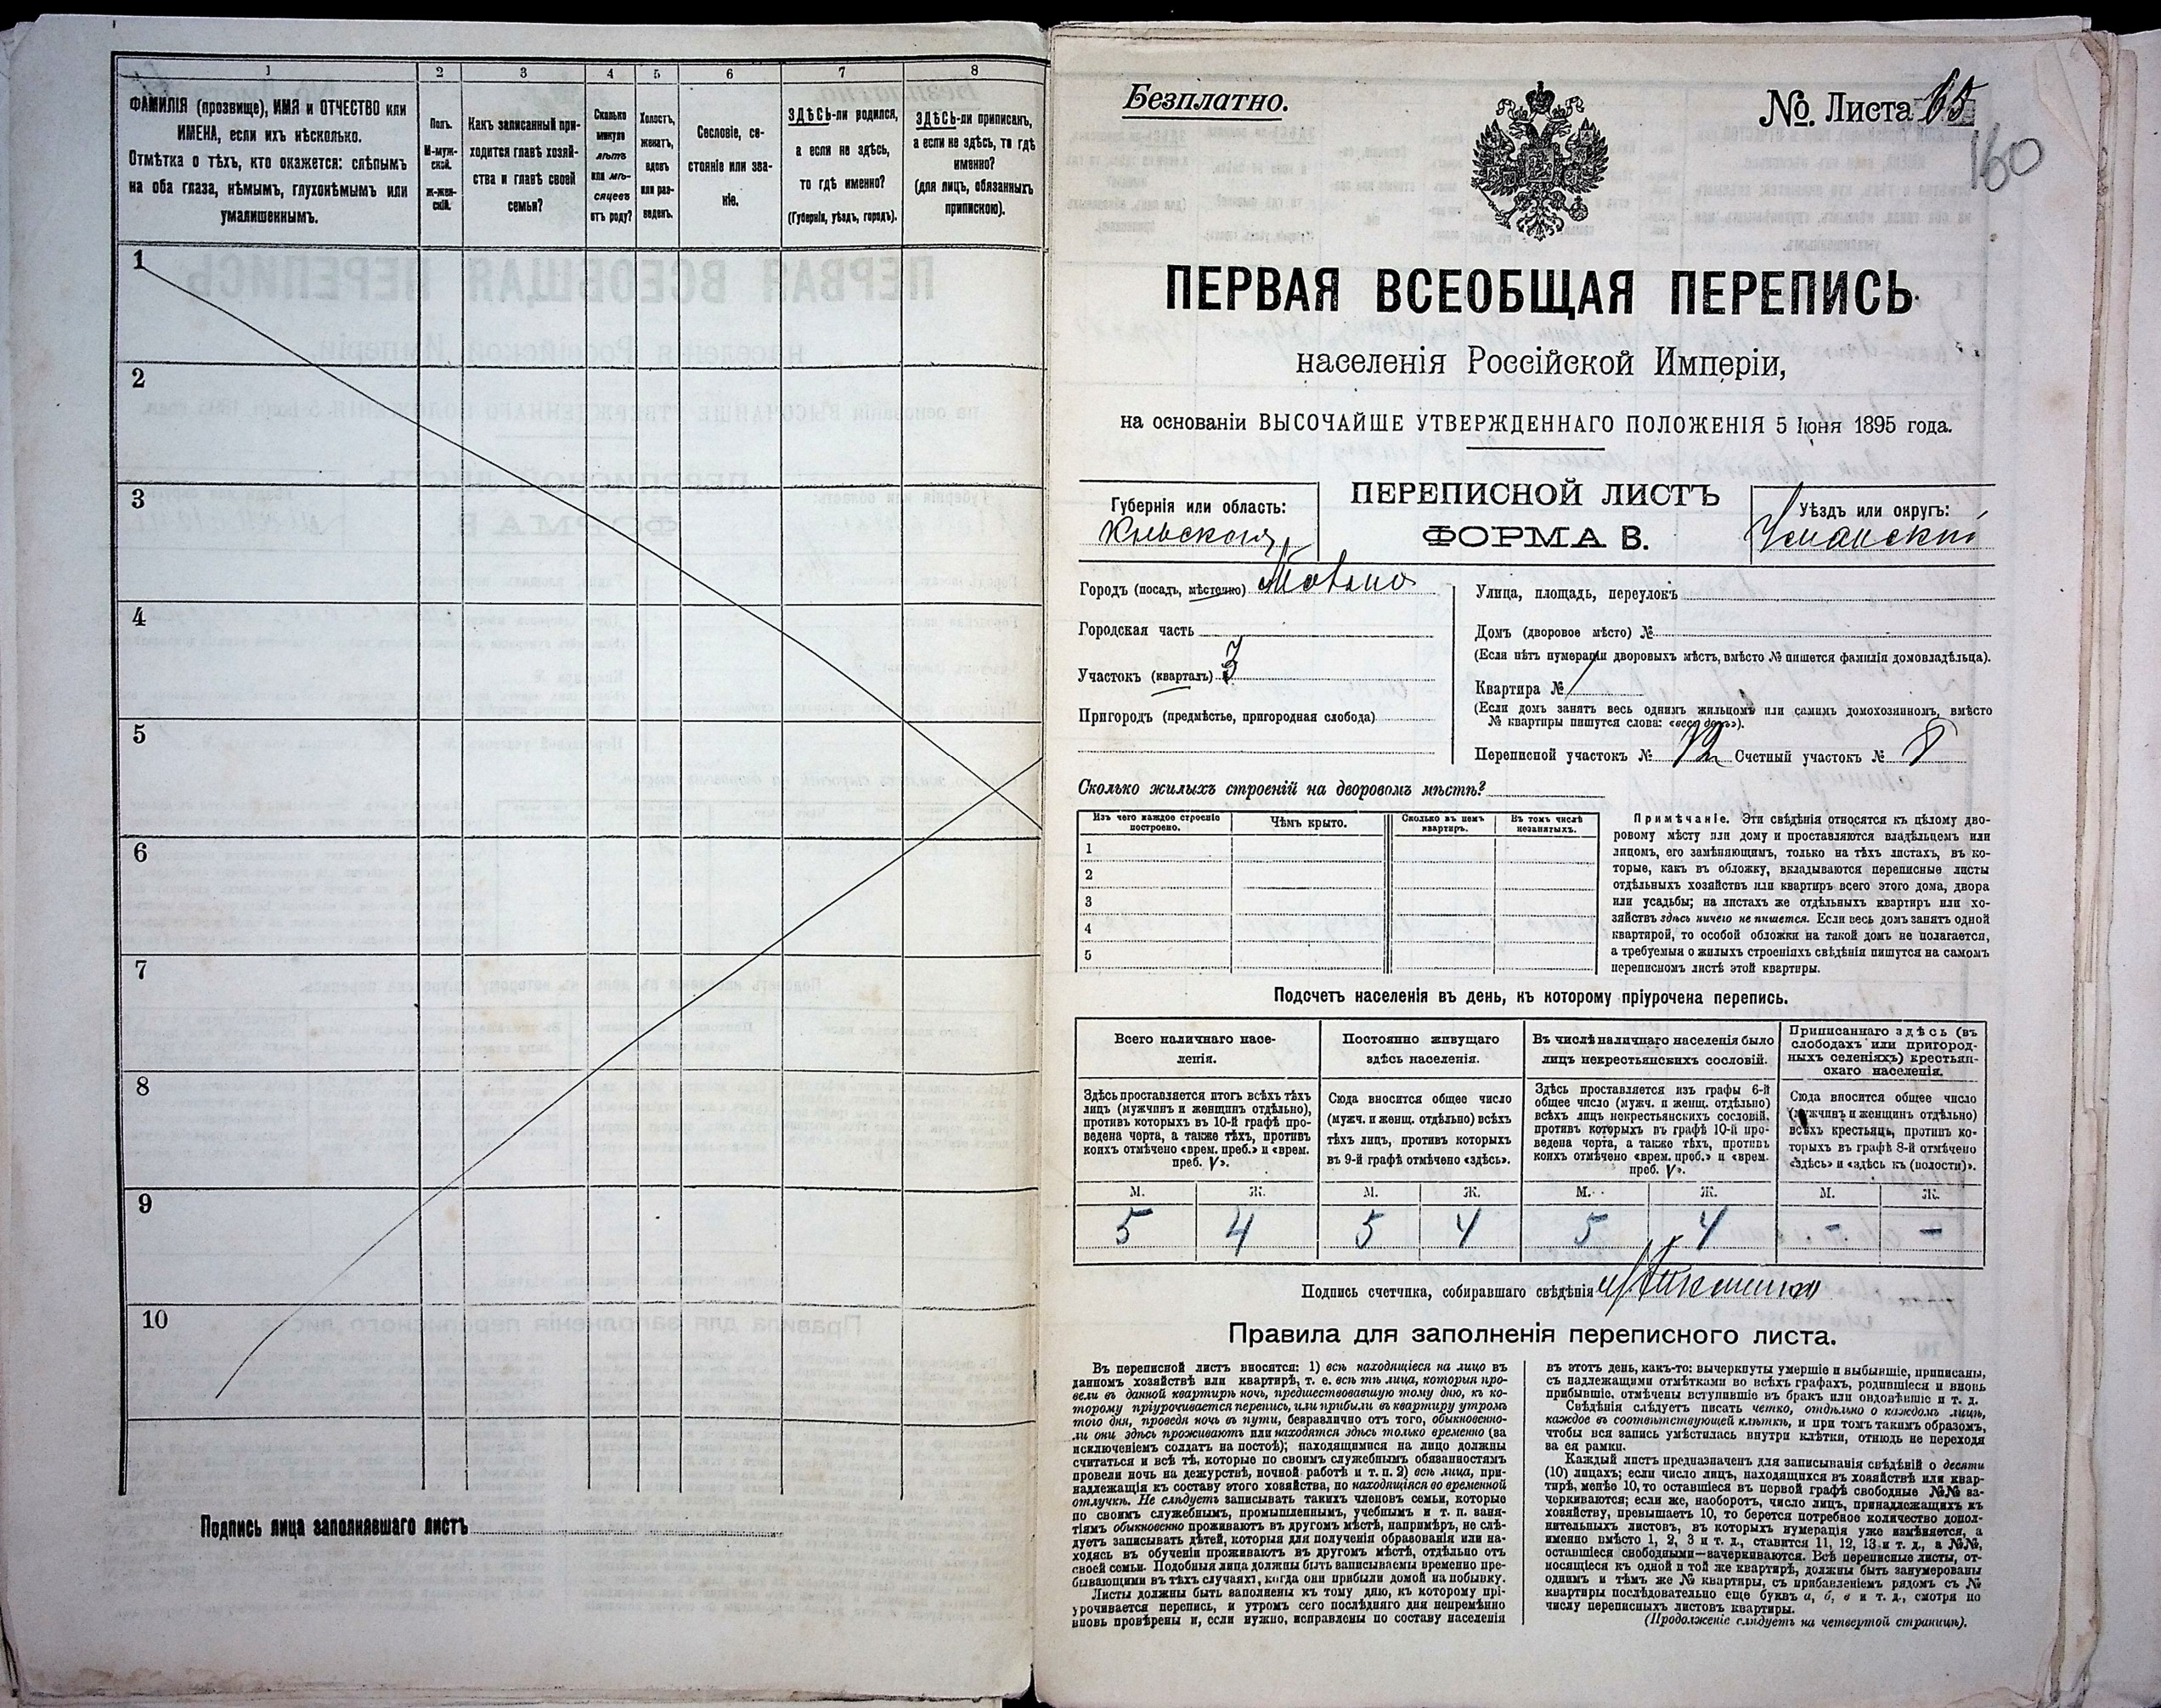 1 2 3 4 5 6 7 8
ФАМИЛІЯ (прозвище), ИМЯ и ОТЧЕСТВО или
ИМЕНА, если ихъ нѣсколько.
Отмѣтка о тѣхъ, кто окажется: слѣпымъ
на оба глаза, нѣмымъ, глухонѣмымъ или
умалишеннымъ.
Полъ.
М-муж-
ской.
Ж-жен-
скій.
Какъ записанный при-
ходится главѣ хозяй-
ства и главѣ своей
семьи?
Сколько
минуло
лѣтъ
или мѣ-
сяцевъ
отъ роду?
Холостъ,
женатъ,
вдовъ
или раз-
веденъ.
Сословіе, со-
стояніе или зва-
ніе.
ЗДѢСЬ-ли родился,
а если не здѣсь,
то гдѣ именно?
(Губернія, уѣздъ, городъ).
ЗДѢСЬ-ли приписанъ,
а если не здѣсь, то гдѣ
именно?
(для лицъ, обязанныхъ
припискою).
1
2
3
4
5
6
7
8
9
10
Подпись лица заполнявшаго листъ
Безплатно.
№. Листа 65
160
ПЕРВАЯ ВСЕОБЩАЯ ПЕРЕПИСЬ
населенія Россійской Имперіи,
на основаніи ВЫСОЧАЙШЕ УТВЕРЖДЕННАГО ПОЛОЖЕНІЯ 5 Іюня 1895 года.
Губернія или область:
Кіевская
ПЕРЕПИСНОЙ ЛИСТЪ
ФОРМА В.
Уѣздъ или округъ:
Уманскій
Городъ (посадъ, мѣстечко)
Городская часть
Участокъ (кварталъ) 3
Пригородъ (предмѣстье, пригородная слобода)
Улица, площадь, переулокъ
Домъ (дворовое мѣсто) №
(Если нѣтъ нумераціи дворовыхъ мѣстъ, вмѣсто № пишется фамилія домовладѣльца).
Квартира №
(Если домъ занятъ весь однимъ жильцомъ или самимъ домохозяиномъ, вмѣсто
№ квартиры пишутся слова: «весь домъ»).
Переписной участокъ № 12 Счетный участокъ № 8
Сколько жилыхъ строеній на дворовомъ мѣстѣ?
Изъ чего каждое строеніе
построено.
Чѣмъ крыто.
Сколько въ немъ
квартиръ.
Въ томъ числѣ
незанятыхъ.
1
2
3
4
5
Примѣчаніе. Эти свѣдѣнія относятся къ цѣлому дво-
ровому мѣсту или дому и проставляются владѣльцемъ или
лицомъ, его замѣняющимъ, только на тѣхъ листахъ, въ ко-
торые, какъ въ обложку, вкладываются переписные листы
отдѣльныхъ хозяйствъ или квартиръ всего этого дома, двора
или усадьбы; на листахъ же отдѣльныхъ квартиръ или хо-
зяйствъ здѣсь ничего не пишется. Если весь домъ занятъ одной
квартирой, то особой обложки на такой домъ не полагается,
а требуемыя о жилыхъ строеніяхъ свѣдѣнія пишутся на самомъ
переписномъ листѣ этой квартиры.
Подсчетъ населенія въ день, къ которому пріурочена перепись.
Всего наличнаго насе-
ленія.
Постоянно живущаго
здѣсь населенія.
Въ числѣ наличнаго населенія было
лицъ некрестьянскихъ сословій.
Приписаннаго здѣсь (въ
слободахъ или пригород-
ныхъ селеніяхъ) крестьян-
скаго населенія.
Здѣсь проставляется итогъ всѣхъ тѣхъ
лицъ (мужчинъ и женщинъ отдѣльно),
противъ которыхъ въ 10-й графѣ про-
ведена черта, а также тѣхъ, противъ
коихъ отмѣчено «врем. преб.» и «врем.
преб. V».
Сюда вносится общее число
(мужч. и женщ. отдѣльно) всѣхъ
тѣхъ лицъ, противъ которыхъ
въ 9-й графѣ отмѣчено «здѣсь».
Здѣсь проставляется изъ графы 6-й
общее число (мужч. и женщ. отдѣльно)
всѣхъ лицъ некрестьянскихъ сословій,
противъ которыхъ въ графѣ 10-й про-
ведена черта, а также тѣхъ, противъ
коихъ отмѣчено «врем. преб.» и «врем.
преб. V».
Сюда вносится общее число
(мужчинъ и женщинъ отдѣльно)
всѣхъ крестьянъ, противъ ко-
торыхъ въ графѣ 8-й отмѣчено
«здѣсь» и «здѣсь къ (волости)».
М. Ж. М. Ж. М. Ж. М. Ж.
5 4 5 4 5 4 - -
Подпись счетчика, собиравшаго свѣдѣнія
Правила для заполненія переписного листа.
Въ переписной листъ вносятся: 1) всѣ находящіеся на лицо въ
данномъ хозяйствѣ или квартирѣ, т. е. всѣ тѣ лица, которыя про-
вели въ данной квартирѣ ночь, предшествовавшую тому дню, къ ко-
торому пріурочивается перепись, или прибыли въ квартиру утромъ
того дня, проведя ночь въ пути, безразлично отъ того, обыкновенно-
ли они здѣсь проживаютъ или находятся здѣсь только временно (за
исключеніемъ солдатъ на постоѣ); находящимися на лицо должны
считаться и всѣ тѣ, которые по своимъ служебнымъ обязанностямъ
провели ночь на дежурствѣ, ночной работѣ и т. п. 2) всѣ лица, при-
надлежащія къ составу этого хозяйства, но находящіяся во временной
отлучкѣ. Не слѣдуетъ записывать такихъ членовъ семьи, которые
по своимъ служебнымъ, промышленнымъ, учебнымъ и т. п. заня-
тіямъ обыкновенно проживаютъ въ другомъ мѣстѣ, напримѣръ, не слѣ-
дуетъ записывать дѣтей, которыя для полученія образованія или на-
ходясь въ обученіи проживаютъ въ другомъ мѣстѣ, отдѣльно отъ
своей семьи. Подобныя лица должны быть записываемы временно пре-
бывающими въ тѣхъ случаяхъ, когда они прибыли домой на побывку.
Листы должны быть заполнены къ тому дню, къ которому прі-
урочивается перепись, и утромъ сего послѣдняго дня непремѣнно
вновь провѣрены и, если нужно, исправлены по составу населенія
въ этотъ день, какъ-то: вычеркнуты умершіе и выбывшіе, приписаны,
съ надлежащими отмѣтками во всѣхъ графахъ, родившіеся и вновь
прибывшіе, отмѣчены вступившіе въ бракъ или овдовѣвшіе и т. д.
Свѣдѣнія слѣдуетъ писать четко, отдѣльно о каждомъ лицѣ,
каждое въ соотвѣтствующей клѣткѣ, и при томъ такимъ образомъ,
чтобы вся запись умѣстилась внутри клѣтки, отнюдь не переходя
за ея рамки.
Каждый листъ предназначенъ для записыванія свѣдѣній о десяти
(10) лицахъ; если число лицъ, находящихся въ хозяйствѣ или квар-
тирѣ, менѣе 10, то оставшіеся въ первой графѣ свободные №№ за-
черкиваются; если же, наоборотъ, число лицъ, принадлежащихъ къ
хозяйству, превышаетъ 10, то берется потребное количество допол-
нительныхъ листовъ, въ которыхъ нумерація уже измѣняется, а
именно вмѣсто 1, 2, 3 и т. д., ставится 11, 12, 13 и т. д., а №№,
оставшіеся свободными—зачеркиваются. Всѣ переписные листы, от-
носящіеся къ одной и той же квартирѣ, должны быть занумерованы
однимъ и тѣмъ же № квартиры, съ прибавленіемъ рядомъ съ №
квартиры послѣдовательно еще буквъ а, б, в и т. д., смотря по
числу переписныхъ листовъ квартиры.
(Продолженіе слѣдуетъ на четвертой страницѣ).